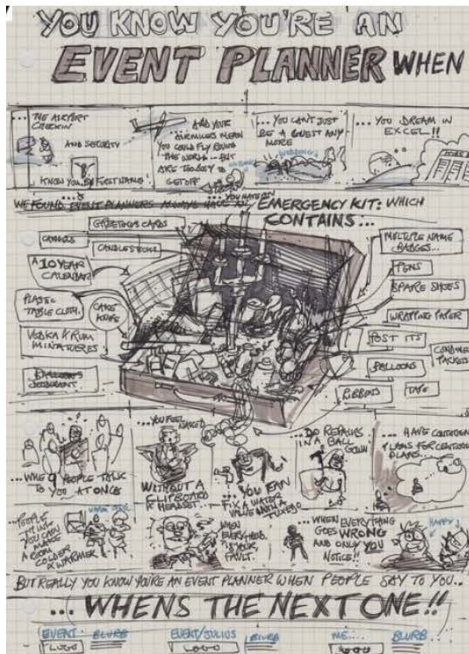 YOU KNOW YOU'RE AN
EVENT PLANNER WHEN
... THE AIRPORT
CHECKIN
AND SECURITY
KNOW YOU BY FIRST NAME
... AND YOUR
AIRMILES MEAN
YOU COULD FLY ROUND
THE WORLD - BUT
ARE TOO BUSY TO
GET OFF
... YOU CAN'T JUST
BE A GUEST ANY
MORE
... YOU DREAM IN
EXCEL!!
WE FOUND EVENT PLANNERS ALWAYS HAVE AN
... YOU HAVE AN
EMERGENCY KIT: WHICH
CONTAINS...
GREETINGS CARDS
CANDLES
CANDLESTICKS
A 10 YEAR
CALENDAR
PLASTIC
TABLE CLOTH
CAKE
KNIFE
VODKA & RUM
MINIATURES
MULTIPLE NAME
BADGES...
PENS
SPARE SHOES
WRAPPING PAPER
POST ITS
BALLOONS
RIBBONS
TAPE
... WHEN PEOPLE TALK
TO YOU AT ONCE
... YOU FEEL
NAKED
WITHOUT A
CLIPBOARD
& HEADSET.
... YOU CAN
FIX A WATER
MAIN IN A
TUXEDO
... DO REPAIRS
IN A BALL
GOWN
... HAVE
PLANS FOR
PLANS...
PEOPLE
THINK
YOU CAN
MAKE
A ROOM
COLDER
& WARMER
WHEN
EVERYTHING
IS YOUR
FAULT.
... WHEN EVERYTHING
GOES WRONG
AND ONLY YOU
NOTICE!!
HAPPY
BUT REALLY YOU KNOW YOU'RE AN EVENT PLANNER WHEN PEOPLE SAY TO YOU..
... WHENS THE NEXT ONE!!
EVENT: BLURB EVENT/JULIUS BLURB ME:... BLURB
LOGO LOGO LOGO